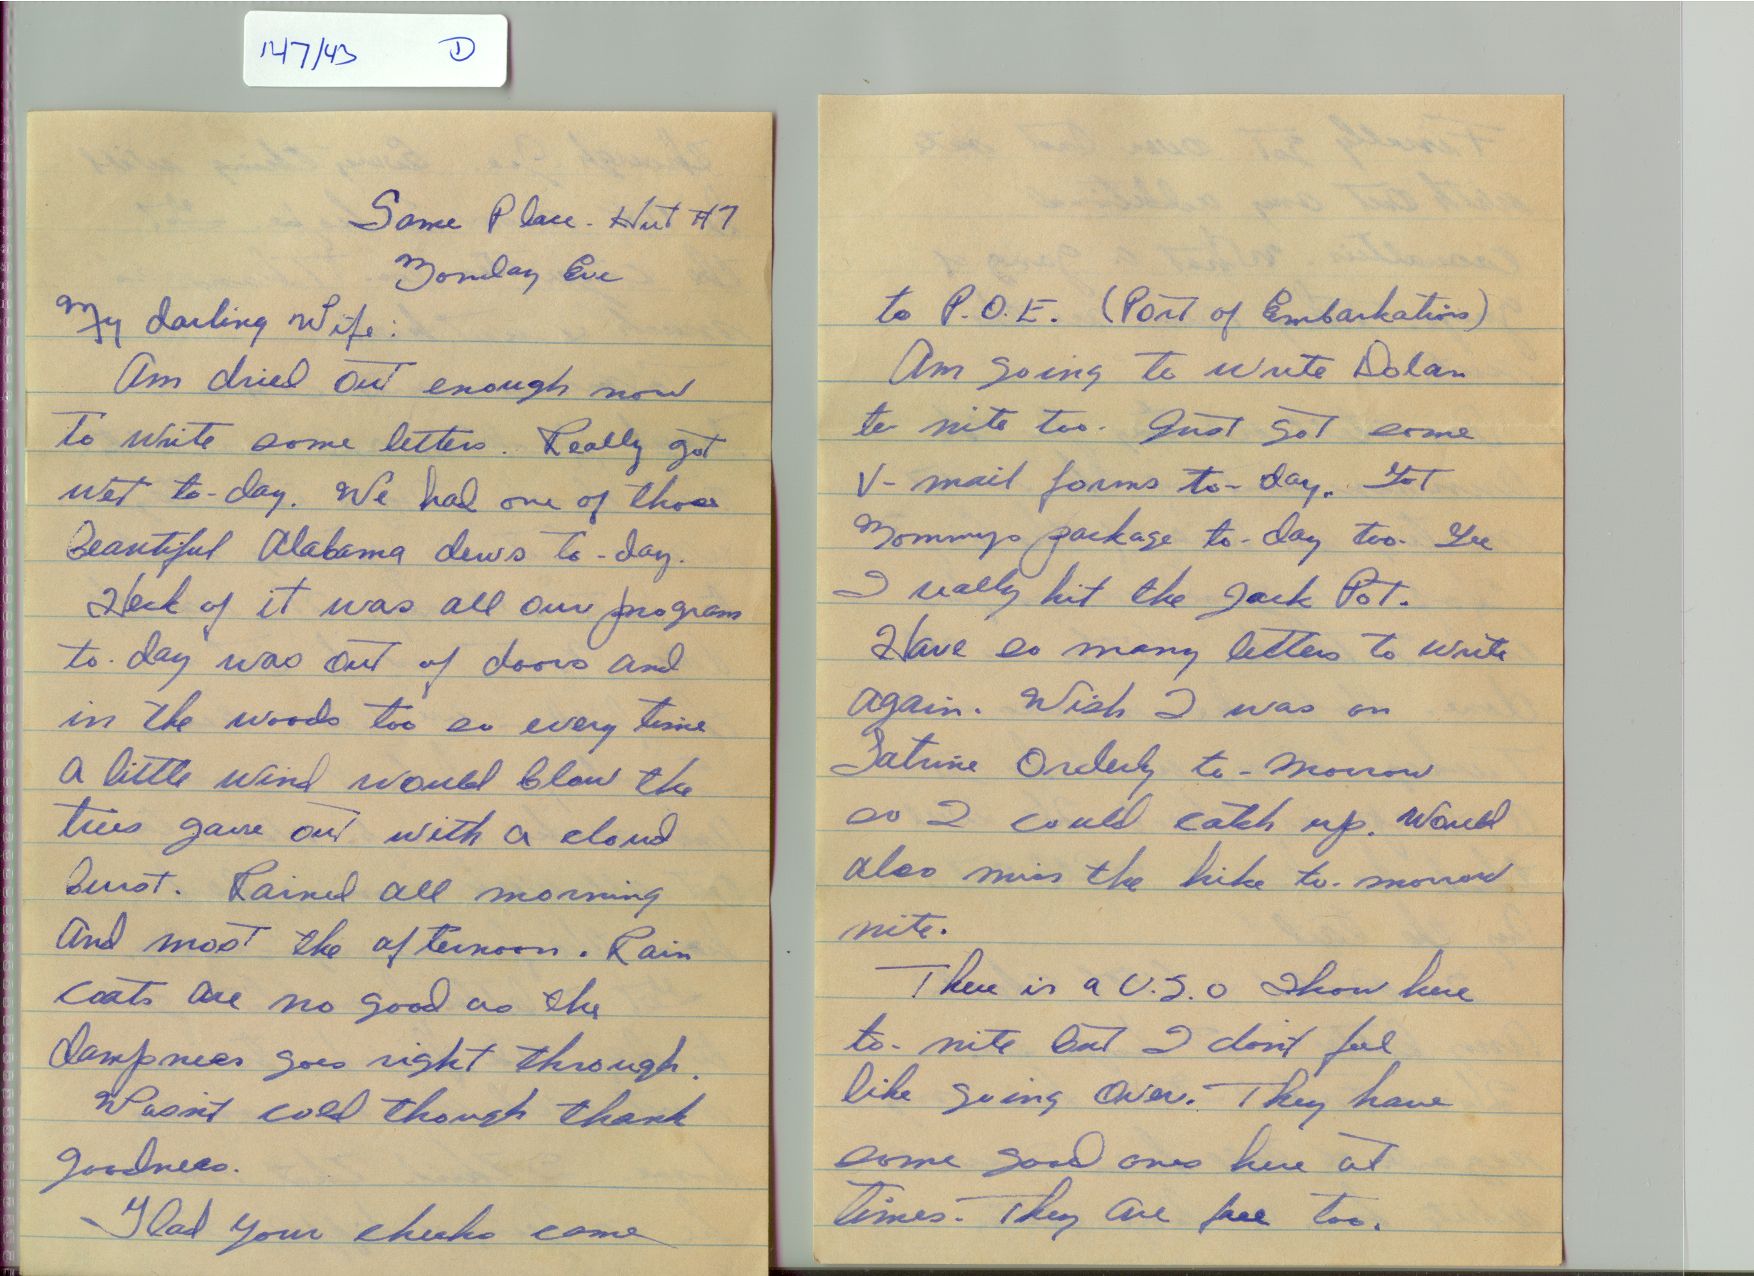 147/43 D
Same Place. Hut #7
Monday Eve
My darling Wife:
Am dried out enough now
to write some letters. Really got
wet to-day. We had one of those
Beautiful Alabama dews to-day.
Heck of it was all our program
to-day was out of doors and
in the woods too so every time
a little wind would blow the
trees gave out with a cloud
burst. Rained all morning
and most the afternoon. Rain
coats are no good as the
dampness goes right through.
Wasn't cold though thank
goodness.
Glad your checks came
to P.O.E. (Port of Embarkation)
Am going to write Dolan
to nite too. Just got some
V-mail forms to-day. Got
Mommys package to-day too. Gee
I really hit the Jack Pot.
Have so many letters to write
again. Wish I was on
Latrine Orderly to-morrow
so I could catch up. Would
also miss the hike to-morrow
nite.
There is a U.S.O Show here
to-nite but I don't feel
like going over. They have
some good ones here at
times. They are free too.